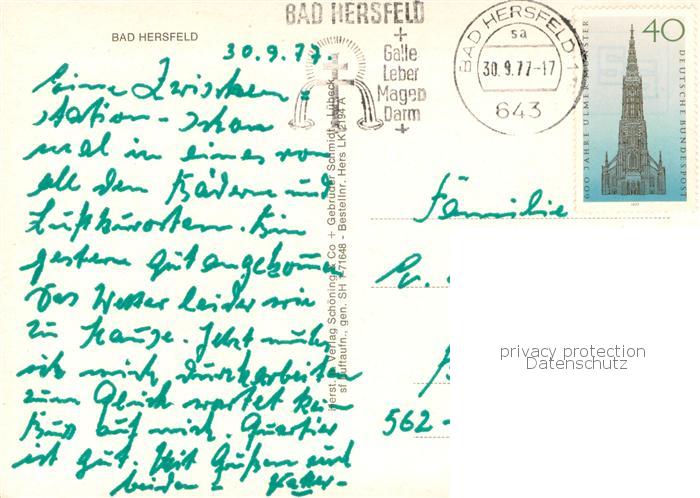 BAD HERSFELD
30.9.77
Eine Zwischen-
station - schon
mal in einem von
all den Bädern und
Luftkurorten. Bin
gestern gut angekommen
Das Wetter leider wie
zu Hause. Jetzt muß
ich mich durcharbeiten
zum Glück wartet kein
Bus auf mich. Quartier
ist gut. Mit Grüßen und
beiden
BAD HERSFELD
+
Galle
Leber
Magen
Darm
+
BAD HERSFELD 1
sa
30.9.77-17
643
40
600 JAHRE ULMER MÜNSTER
DEUTSCHE BUNDESPOST
1977
Verlag Schöning & Co + Gebrüder Schmidt, Lübeck
Luftaufn., gen. SH 1-71648 - Bestellnr. Hers LK 2194 A
Familie
562-
privacy protection
Datenschutz